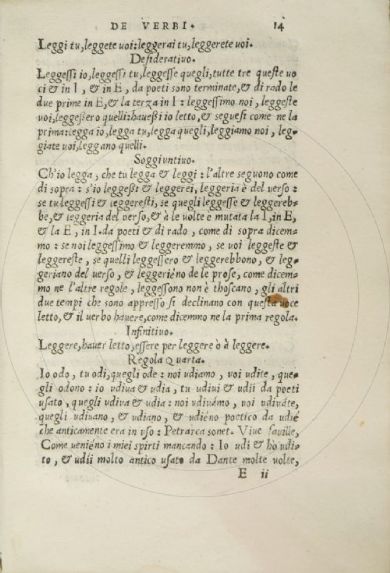 DE VERBI. 14
Leggi tu, leggete uoi: leggerai tu, leggerete uoi.
Desiderativo.
Leggessi io, leggessi tu, leggesse quegli, tutte tre queste uo
ci & in I, & in E, da poeti sono terminate, & di rado le
due prime in E, & la terza in I: leggessimo noi, leggeste
voi, leggessero quelli: havessi io letto, & seguesi come ne la
prima: legga io, legga tu, legga quegli, leggiamo noi, leg-
giate voi, leggano quelli.
Soggiuntivo.
Ch'io legga, che tu legga & leggi: l'altre seguono come
di sopra: s'io leggessi & leggerei, leggeria è del verso:
se tu leggessi & leggeresti, se quegli leggesse & leggereb-
be, & leggeria del verso, & à le volte e mutata la I, in E,
& la E, in I. da poeti & di rado, come di sopra dicem-
mo: se noi leggessimo & leggeremmo, se voi leggeste &
leggereste, se quelli leggessero & leggerebbono, & leg-
geriano del verso, & leggeriéno de le prose, come dicem-
mo ne l'altre regole, leggessono non è thoscano, gli altri
due tempi che sono appresso si declinano con questa voce
letto, & il verbo havere, come dicemmo ne la prima regola.
Infinitivo.
Leggere, haver letto, essere per leggere ò à leggere.
Regola Quarta.
Io odo, tu odi, quegli ode: noi udiamo, voi udite, que-
gli odono: io udiva & udia, tu udivi & udii da poeti
usato, quegli udiva & udia: noi udivámo, voi udiváte,
quegli udivano, & udiano, & udiéno poetico da udié
che anticamente era in uso: Petrarca sonet. Vive faville,
Come veniéno i miei spirti mancando: Io udi & hò udi-
to, & udii molto antico usato da Dante molte volte,
E ii